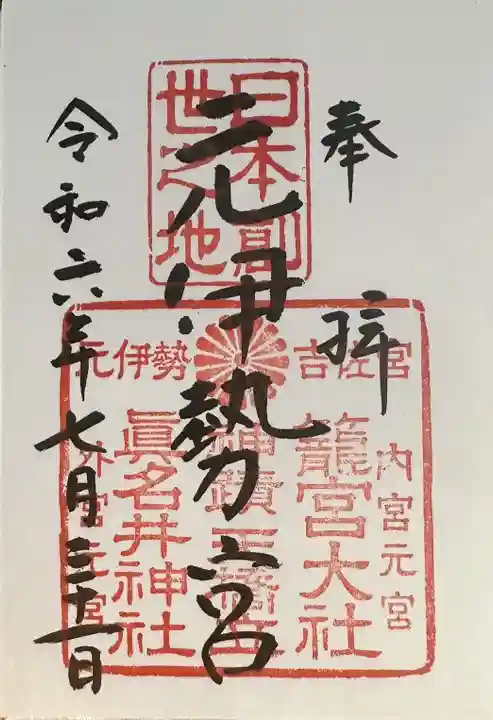 奉拝
日本創世之地
元伊勢宮
吉佐宮
元伊勢
内宮元宮
籠宮大社
眞名井神社
外宮元宮
令和六年七月三十一日